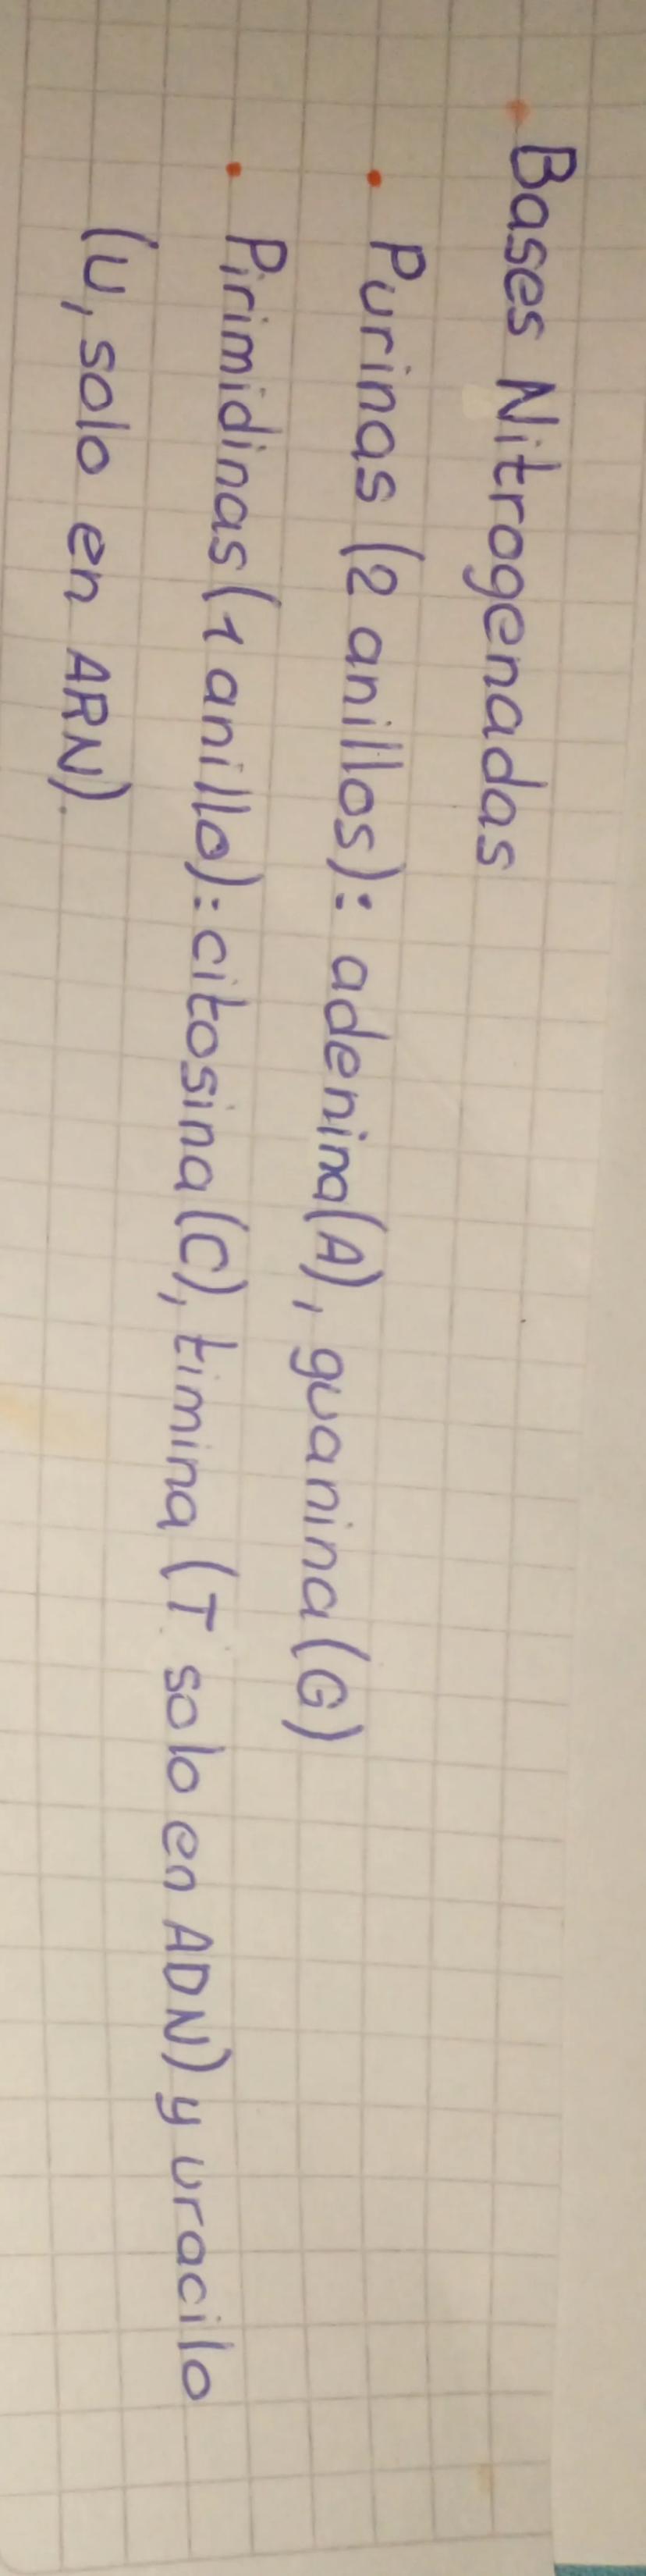 • Bases Nitrogenadas
• Purinas (2 anillos): adenina(A), guanina(G)
• Pirimidinas (1 anillo): citosina(C), timina (T solo en ADN) y uracilo
(U, solo en ARN).